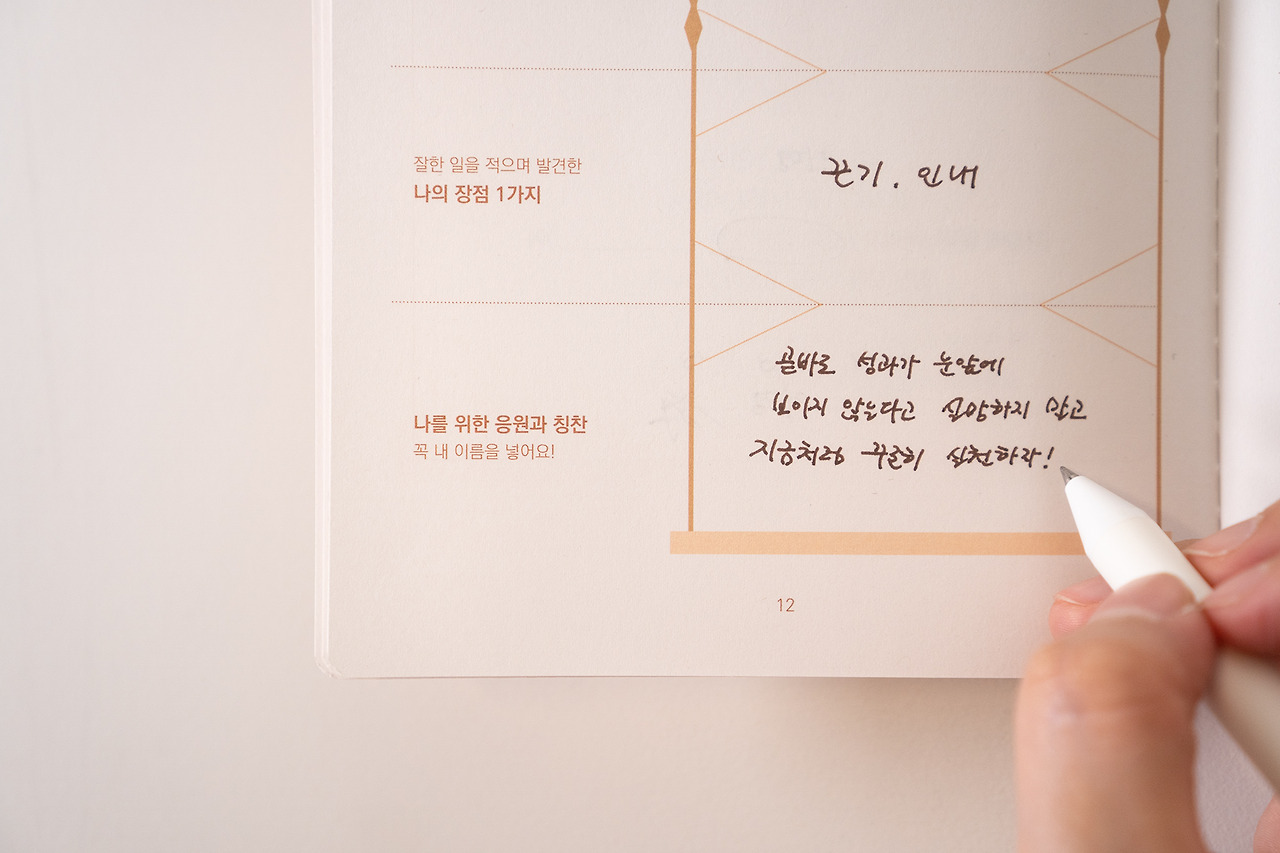 잘한 일을 적으며 발견한
나의 장점 1가지
끈기. 인내
나를 위한 응원과 칭찬
꼭 내 이름을 넣어요!
곧바로 성과가 눈앞에
보이지 않는다고 실망하지 말고
지금처럼 꾸준히 실천하자!
12